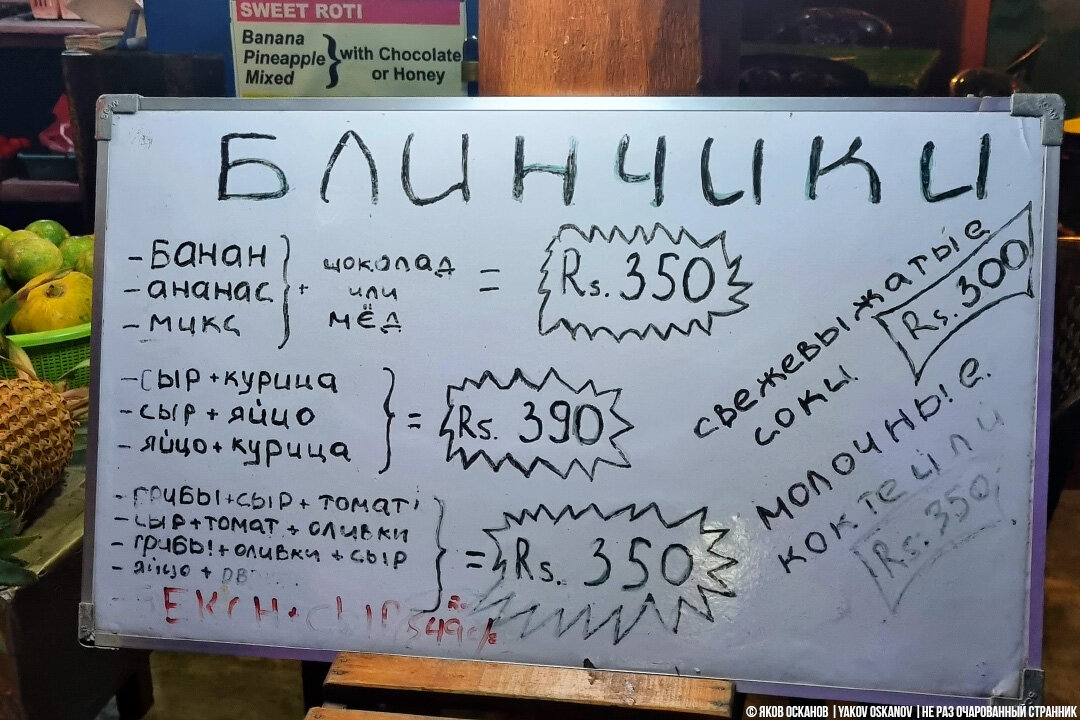 SWEET ROTI
Banana
Pineapple
Mixed
with Chocolate
or Honey
БЛИНЧИКИ
- БАНАН
- АНАНАС
- МИКС
+ ШОКОЛАД
или
МЁД
= Rs. 350
- СЫР + КУРИЦА
- СЫР + ЯЙЦО
- ЯЙЦО + КУРИЦА
= Rs. 390
- ГРИБЫ + СЫР + ТОМАТ
- СЫР + ТОМАТ + ОЛИВКИ
- ГРИБЫ + ОЛИВКИ + СЫР
- ЯЙЦО +
= Rs. 350
СВЕЖЕВЫЖАТЫЕ
СОКИ
Rs. 300
МОЛОЧНЫЕ
КОКТЕЙЛИ
Rs. 350
© ЯКОВ ОСКАНОВ | YAKOV OSKANOV | НЕ РАЗ ОЧАРОВАННЫЙ СТРАННИК